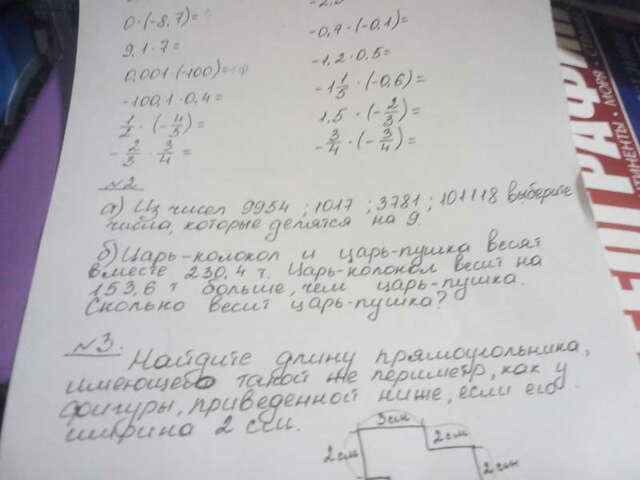 0·(-8,7)=
9,1·7=
0,001·(-100)=
-100,1·0,4=
1/2·(-4/5)=
-2/3·3/4=
-0,7·(-0,1)=
-1,2·0,5=
-1 1/3·(-0,6)=
1,5·(-2/3)=
-3/4·(-3/4)=
№2
а) Из чисел 9954; 1017; 3781; 101118 выберите
числа, которые делятся на 9.
б) Царь-колокол и царь-пушка весят
вместе 230,4 т. Царь-колокол весит на
153,6 т больше, чем царь-пушка.
Сколько весит царь-пушка?
№3.
Найдите длину прямоугольника,
имеющего такой же периметр, как у
фигуры, приведенной ниже, если его
ширина 2 см.
3см
2см
2см
2см
МОРЯ